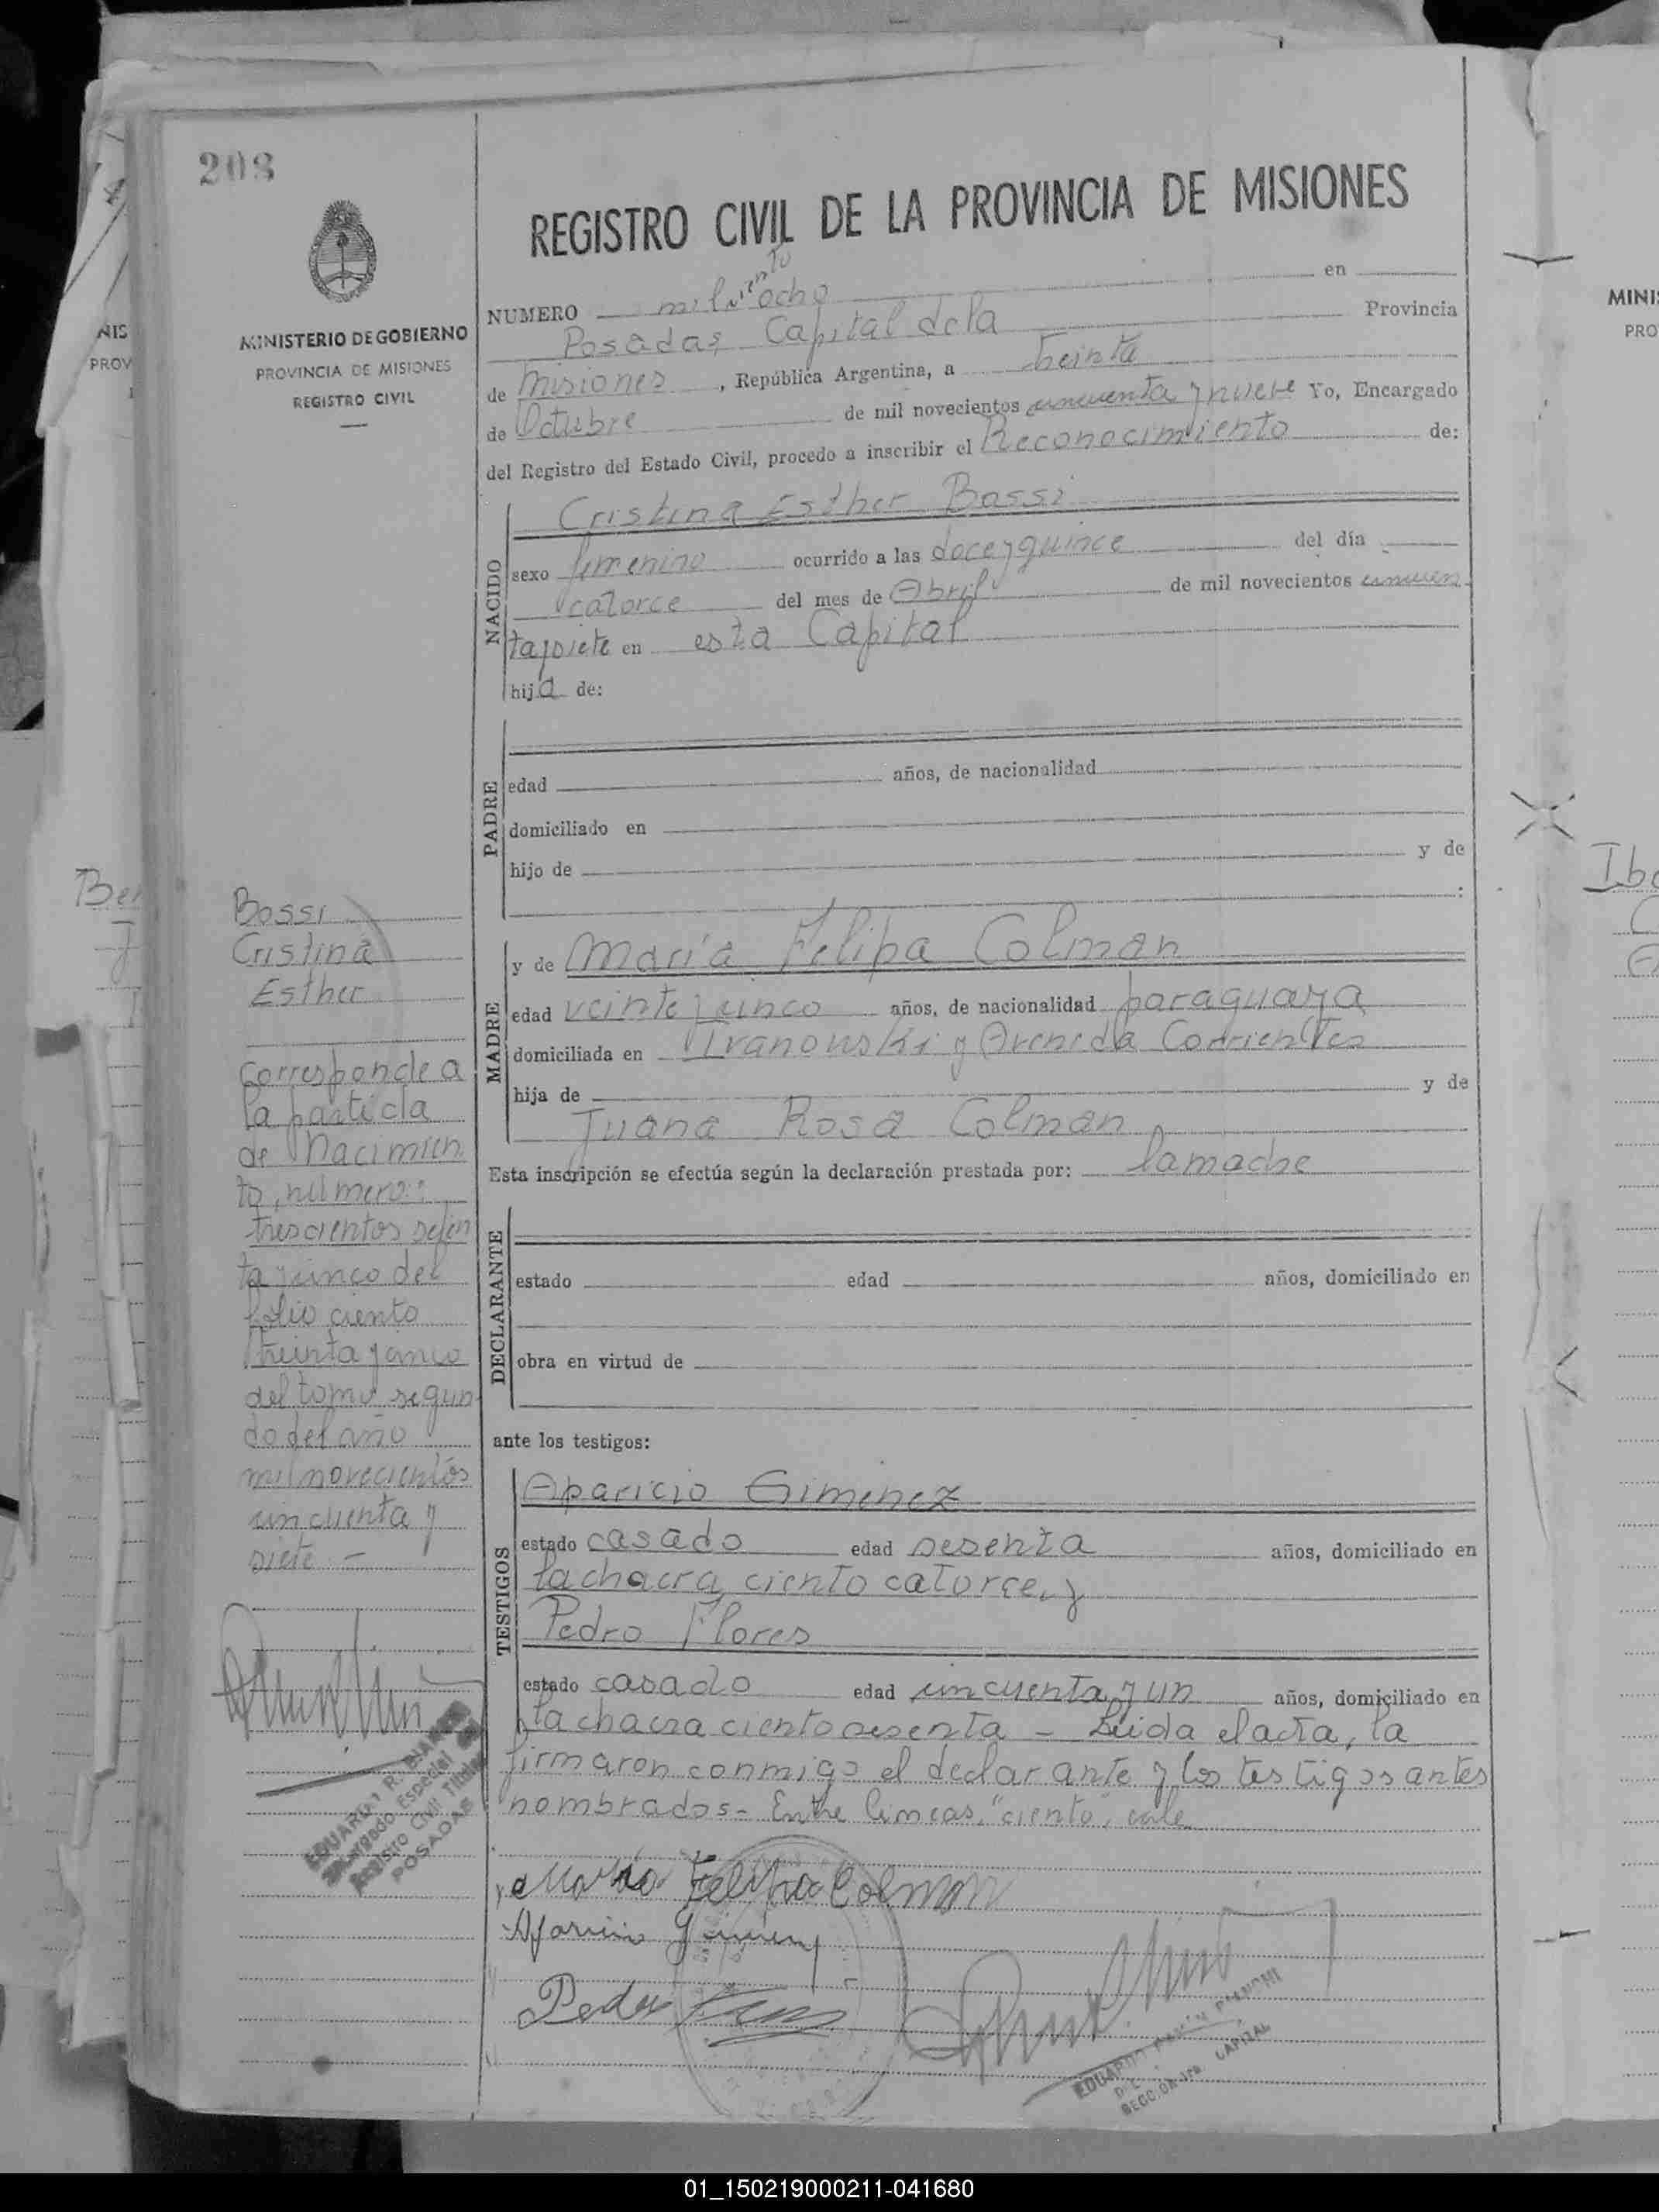 208
MINISTERIO DE GOBIERNO
PROVINCIA DE MISIONES
REGISTRO CIVIL
REGISTRO CIVIL DE LA PROVINCIA DE MISIONES
ciento
NUMERO mil ocho en
Posadas, Capital de la Provincia
de Misiones, República Argentina, a treinta
de Octubre de mil novecientos cincuenta y nueve Yo, Encargado
del Registro del Estado Civil, procedo a inscribir el Reconocimiento de:
NACIDO
Cristina Esther Bossi
sexo femenino ocurrido a las doce y quince del día
catorce del mes de Abril de mil novecientos cincuen
ta y siete en esta Capital
hija de:
PADRE
edad años, de nacionalidad
domiciliado en
hijo de y de
:
MADRE
y de María Felipa Colman
edad veinte y cinco años, de nacionalidad paraguaya
domiciliada en Ivanouski y Avenida Corrientes
hija de y de
Juana Rosa Colman
Esta inscripción se efectúa según la declaración prestada por: la madre
DECLARANTE
estado edad años, domiciliado en
obra en virtud de
ante los testigos:
TESTIGOS
Aparicio Gimenez
estado casado edad sesenta años, domiciliado en
la chacra ciento catorce, y
Pedro Flores
estado casado edad cincuenta y un años, domiciliado en
la chacra ciento sesenta - Leida el acta, la
firmaron conmigo el declarante y los testigos antes
nombrados - Entre lineas, "ciento", vale
María Felipa Colman
Aparicio Gimenez
Pedro Flores
Bossi
Cristina
Esther
Corresponde a
la partida
de Nacimien
to, número:
trescientos seten
ta y cinco del
folio ciento
treinta y cinco
del tomo segun
do del año
mil novecientos
cincuenta y
siete -
EDUARDO R.
Encargado Especial del
Registro Civil Titular
POSADAS
EDUARDO RAMÓN
SECCION 1ra. CAPITAL
NIS
PROV
Ber
MINIS
PRO
Ibo
01_150219000211-041680